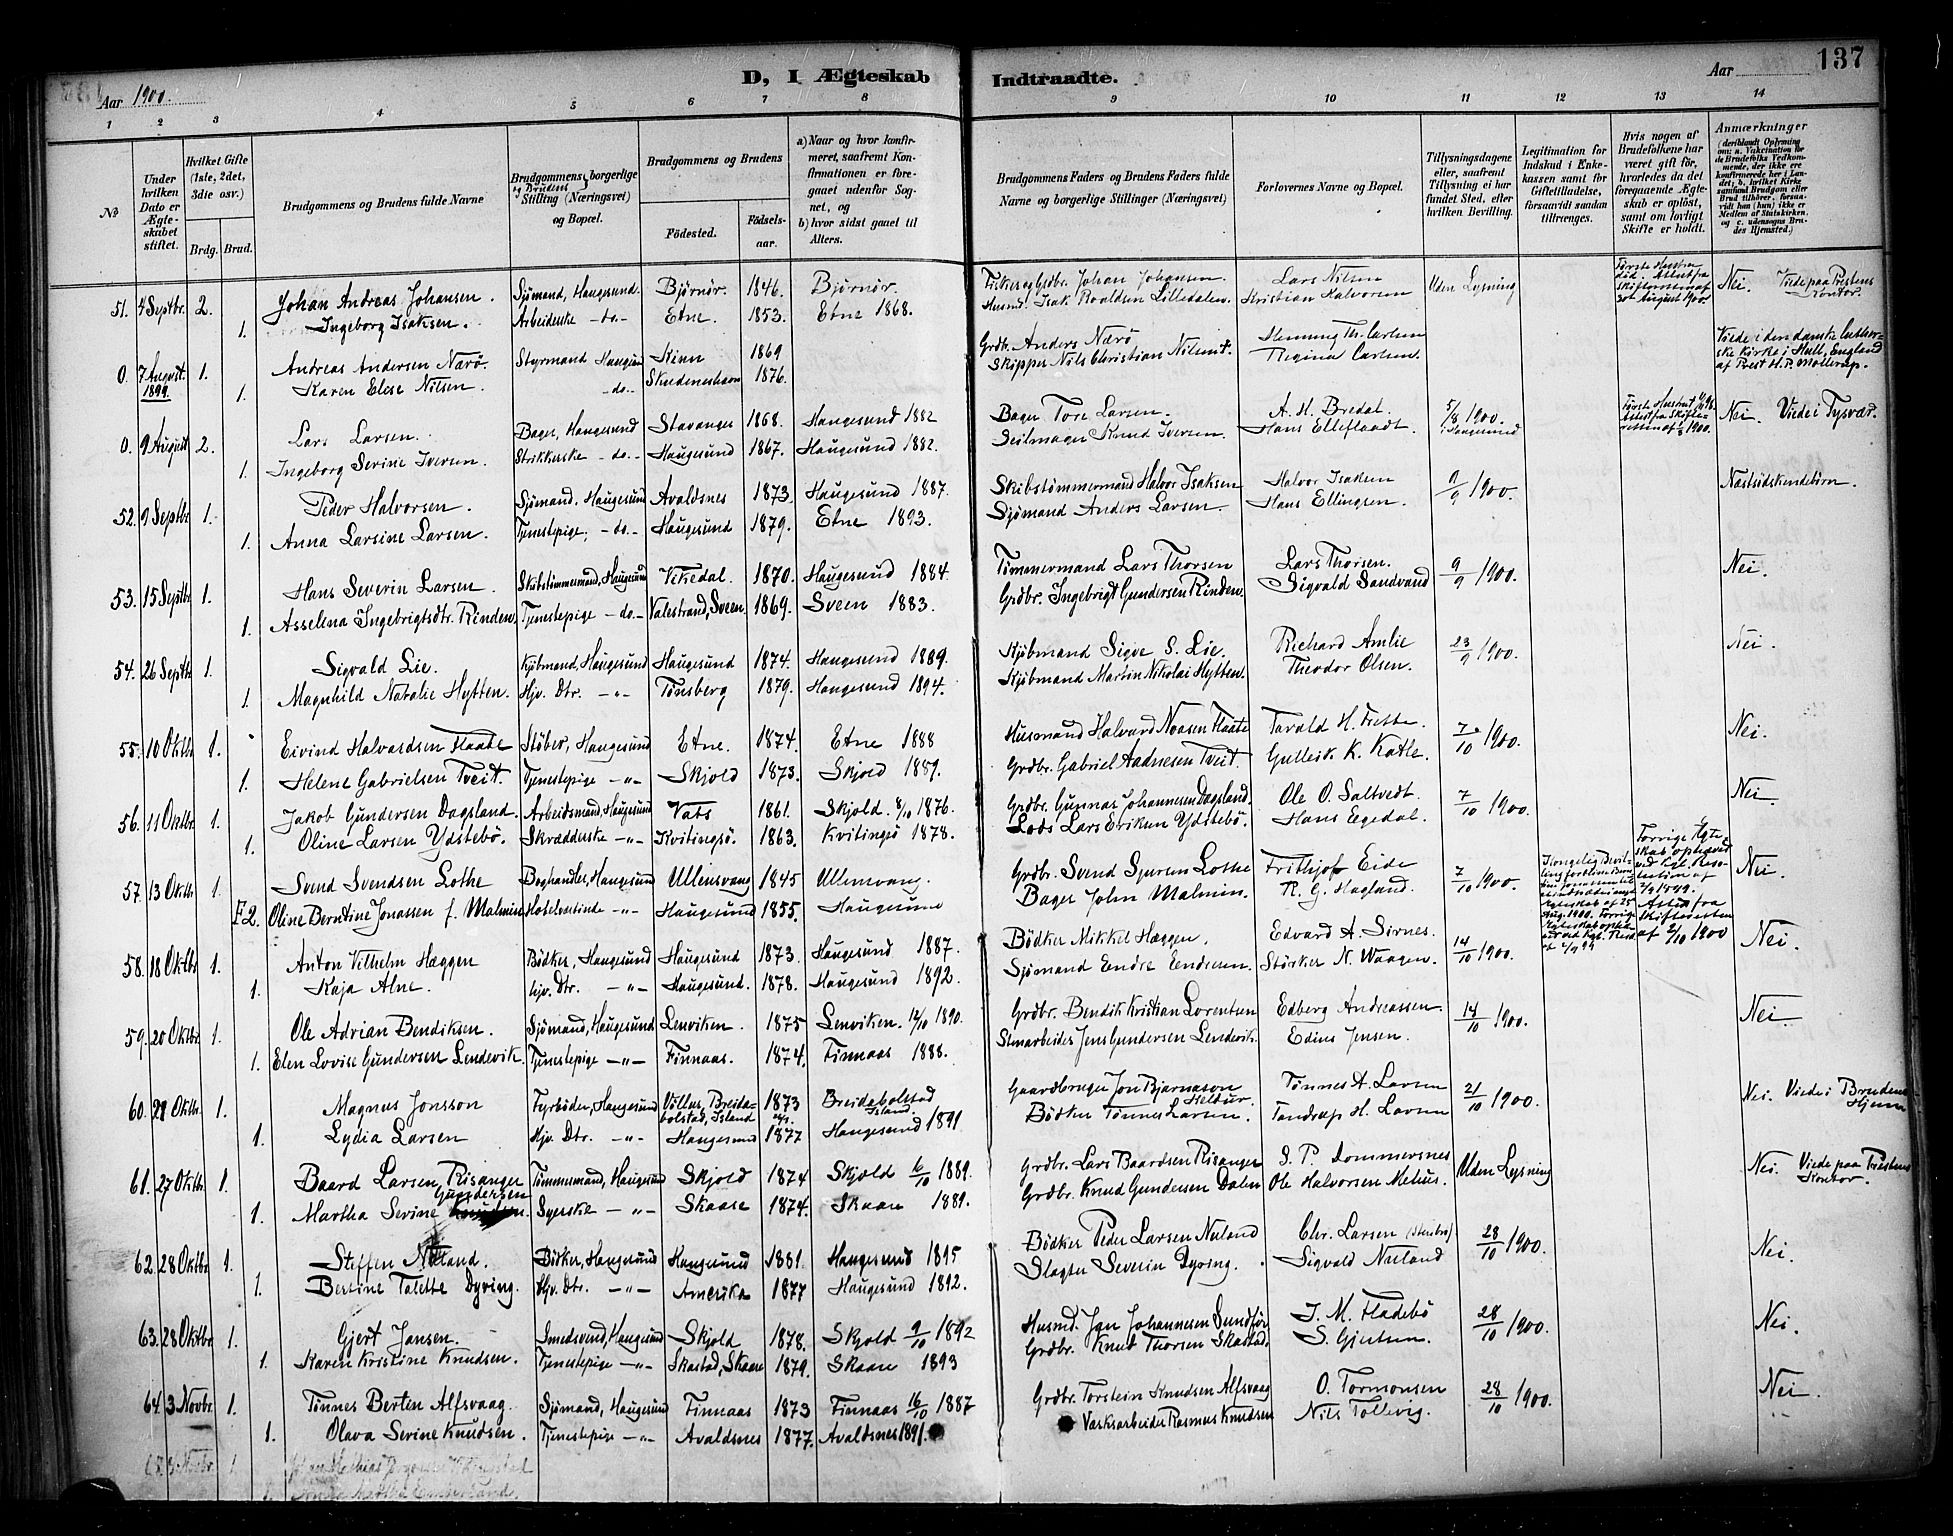 D, I Ægteskab Indtraadte.
137
Aar 1900.
Aar
1 2 3 4 5 6 7 8 9 10 11 12 13 14
No
Under hvilken Dato er Ægteskabet stiftet.
Hvilket Gifte (1ste, 2det, 3die osv.)
Brdg. Brud.
Brudgommens og Brudens fulde Navne
Brudgommens og Brudens borgerlige Stilling (Næringsvei) og Bopæl.
Brudgommens og Brudens
Födested. Födsels-aar.
a) Naar og hvor konfirmeret, saafremt Konfirmationen er foregaaet udenfor Sognet, og
b) hvor sidst gaaet til Alters.
Brudgommens Faders og Brudens Faders fulde Navne og borgerlige Stillinger (Næringsvei)
Forlovernes Navne og Bopæl.
Tillysningsdagene eller, saafremt Tillysning ei har fundet Sted, efter hvilken Bevilling.
Legitimation for Indskud i Enkekassen samt for Giftetilladelse, forsaavidt saadan tiltrænges.
Hvis nogen af Brudefolkene har været gift för, hvorledes da det foregaaende Ægteskab er oplöst, samt om lovligt Skifte er holdt.
Anmærkninger (deriblandt Oplysning om: a. Vakcination for de Brudefolks Vedkommende, der ikke ere konfirmerede her i Landet; b. hvilket Kirkesamfund Brudgom eller Brud tilhörer, forsaavidt han (hun) ikke er Medlem af Statskirken, og c. udensogns Brudes Hjemsted.)
51. 4 Septbr. 2. Johan Andreas Johansen. Sjömand, Haugesund. Bjørnør. 1846. Bjørnør. Fisker og Grdbr. Johan Johansen Lars Nilsen Uden Lysning Første Hustru død. Attest fra Skifteretten af 30te August 1900. Nei. Viede paa Prestens Kontor.
1. Ingeborg Isaksen. Arbeiderske - do - Etne. 1853. Etne 1868. Husmd. Isak Roaldsen Lilledalen. Kristian Halvorsen
0. 7 August. 1899. 1. Andreas Andersen Nærö. Styrmand Haugesund Kinn 1869 Grdbr. Anders Nærö Henning Th. Carlsen Viede i den danske lutherske Kirke i Hull, England af Prest H. P. Mollerup.
1. Karen Elese Nilsen. - do - Skudeneshavn 1876. Skipper Nils Christian Nilsen †. Regina Carlsen.
0. 9 August 2. Lars Larsen. Bager, Haugesund Stavanger 1868. Haugesund 1882 Bager Tore Larsen. A. H. Bredal. 5/8 1900. i Haugesund Nei. Viede i Tysvær.
1. Ingeborg Serine Iversen. Strikkerske - do - Haugesund 1867. Haugesund 1882. Seilmager Knud Iversen. Hans Elleflaadt.
52. 9 Septbr 1. Peder Halvorsen. Sjömand, Haugesund Avaldsnes 1873. Haugesund 1887. Skibstömmermand Halvor Isaksen Halvor Isaksen 9/9 1900. Næstsödskendebörn.
1. Anna Larsine Larsen. Tjenestepige, - do - Haugesund 1879. Etne 1893. Sjömand Anders Larsen. Hans Ellingsen.
53. 15 Septbr 1. Hans Severin Larsen. Skibstömmermand, Haugesund Vikedal. 1870. Haugesund 1884. Tömmermand Lars Thorsen Lars Thorsen. 9/9 1900. Nei.
1. Asselina Ingebrigtsdtr. Rinden. Tjenestepige - do - Valestrand, Sveen 1869. Sveen 1883. Grdbr. Ingebrigt Gundersen Rinden. Sigvald Sandvand
54. 26 Septbr 1. Sigvald Lie. Kjöbmand, Haugesund Haugesund 1874. Haugesund 1889. Kjöbmand Sigve S. Lie. Richard Amlie 23/9 1900. Nei.
1. Magnhild Natalie Hytten. Hjv. Dtr. - " - Tönsberg 1879. Haugesund 1894. Kjöbmand Martin Nikolai Hytten. Theodor Olsen.
55. 10 Oktbr 1. Eivind Halvardsen Flaate Stöber, Haugesund Etne. 1874. Etne 1888 Husmand Halvard Noasen Flaate Tarald H. Frette. 7/10 1900. Nei.
1. Helene Gabrielsen Tveit. Tjenestepige - " - Skjold 1873. Skjold 1887. Grdbr. Gabriel Aadnesen Tveit. Gullesik K. Katle.
56. 11 Oktbr. 1. Jakob Gundersen Dagsland. Arbeidsmand, Haugesund Vats 1861. Skjold. 8/10 1876. Grdbr. Gunnar Johannesen Dagsland. Ole O. Saltvedt. 7/10 1900. Nei.
1. Oline Larsen Ydstebö. Skrædderske - " - Kvitingsö. 1863. Kvitingsö 1878. Lods Lars Eriksen Ydstebö. Hans Egedal.
57. 13 Oktbr 1. Svend Svendsen Lothe Boghandler, Haugesund Ullensvang 1845 Ullensvang. Grdbr. Svend Sjursen Lothe Frithjof Eide 7/10 1900. Nei.
F 2. Oline Berntine Jonassen f. Malmin Hotelvertinde - " - Haugesund 1855. Haugesund Bager John Malmin. R. G. Hagland.
58. 18 Oktbr 1. Anton Vilhelm Hæggen Bödker, Haugesund Haugesund 1873. Haugesund 1887. Bödker Mikkel Hæggen. Edvard A. Sirnes. 14/10 1900. Nei.
1. Kaja Alne. Hjv. Dtr. - " - Haugesund. 1878. Haugesund 1892. Sjömand Endre Endresen. Störker N. Waagen.
59. 20 Oktbr 1. Ole Adrian Bendiksen. Sjömand, Haugesund Lenviken. 1875 Lenviken. 12/10 1890. Grdbr. Bendik Kristian Lorentsen Edberg Andreassen. 14/10 1900. Nei.
1. Elen Lovise Gundersen Lendevik. Tjenestepige - " - Finnaas. 1874. Finnaas 1888. Stenarbeider Jens Gundersen Lendevik. Edius Jensen.
60. 21 Oktbr. 1. Magnus Jonsson Fyrböder, Haugesund Völlus, Breidabolstad, Island 1873 Breidabolstad Island. Gaardbruger Jon Bjarnason Tönnes A. Larsen 21/10 1900. Nei. Viede i Brudens Hjem
1. Lydia Larsen Hjv. Dtr. - " - Haugesund 1877 Haugesund 1891 Bödker Tönnes Larsen. Tandrup H. Larsen
61. 27 Oktbr. 1. Baard Larsen Risanger Tömmermand, Haugesund Skjold 1874 Skjold 6/10 1889. Grdbr. Lars Baardsen Risanger S. P. Dommersnes Uden Lysning Nei. Viede paa Prestens Kontor.
1. Martha Serine Gundersen Syerske - " - Skaare 1874. Skaare 1889. Grdbr. Knud Gundersen Dalen Ole Halvorsen Melius.
62. 28 Oktbr 1. Steffen Nuland. Bödker, Haugesund Haugesund 1881. Haugesund 1895 Bödker Peder Larsen Nuland Chr. Larsen 28/10 1900. Nei.
1. Bertine Talette Dyring. Hjv. Dtr. - " - Amerika 1877 Haugesund 1892. Slagter Severin Dyring. Sigvald Nuland
63. 28 Oktbr 1. Gjert Jansen. Smedsvend, Haugesund Skjold 1878. Skjold 9/10 1892 Husmd. Jan Johannesen Sundför J. M. Fladebö 28/10 1900. Nei.
1. Karen Kristine Knudsen. Tjenestepige - " - Skastad, Skaare 1879. Skaare 1893 Grdbr. Knut Thorsen Skastad. S. Gjertsen.
64. 3 Novbr. 1. Tönnes Bertin Alfsvaag. Sjömand, Haugesund Finnaas 1873 Finnaas 16/10 1887 Grdbr. Torstein Knudsen Alfsvaag O. Tormonsen 28/10 1900. Nei.
1. Olava Serine Knudsen. Tjenestepige - " - Avaldsnes 1877. Avaldsnes 1891. Værksarbeider Rasmus Knudsen Nils Tollevig.